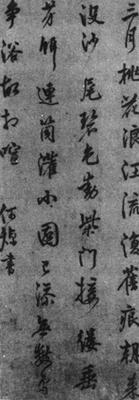 三月桃花浪江流復舊痕朝來
沒沙尾碧色動柴門接縷垂
芳餌連筒灌小園已添無數鳥
爭浴故相喧 何焯書